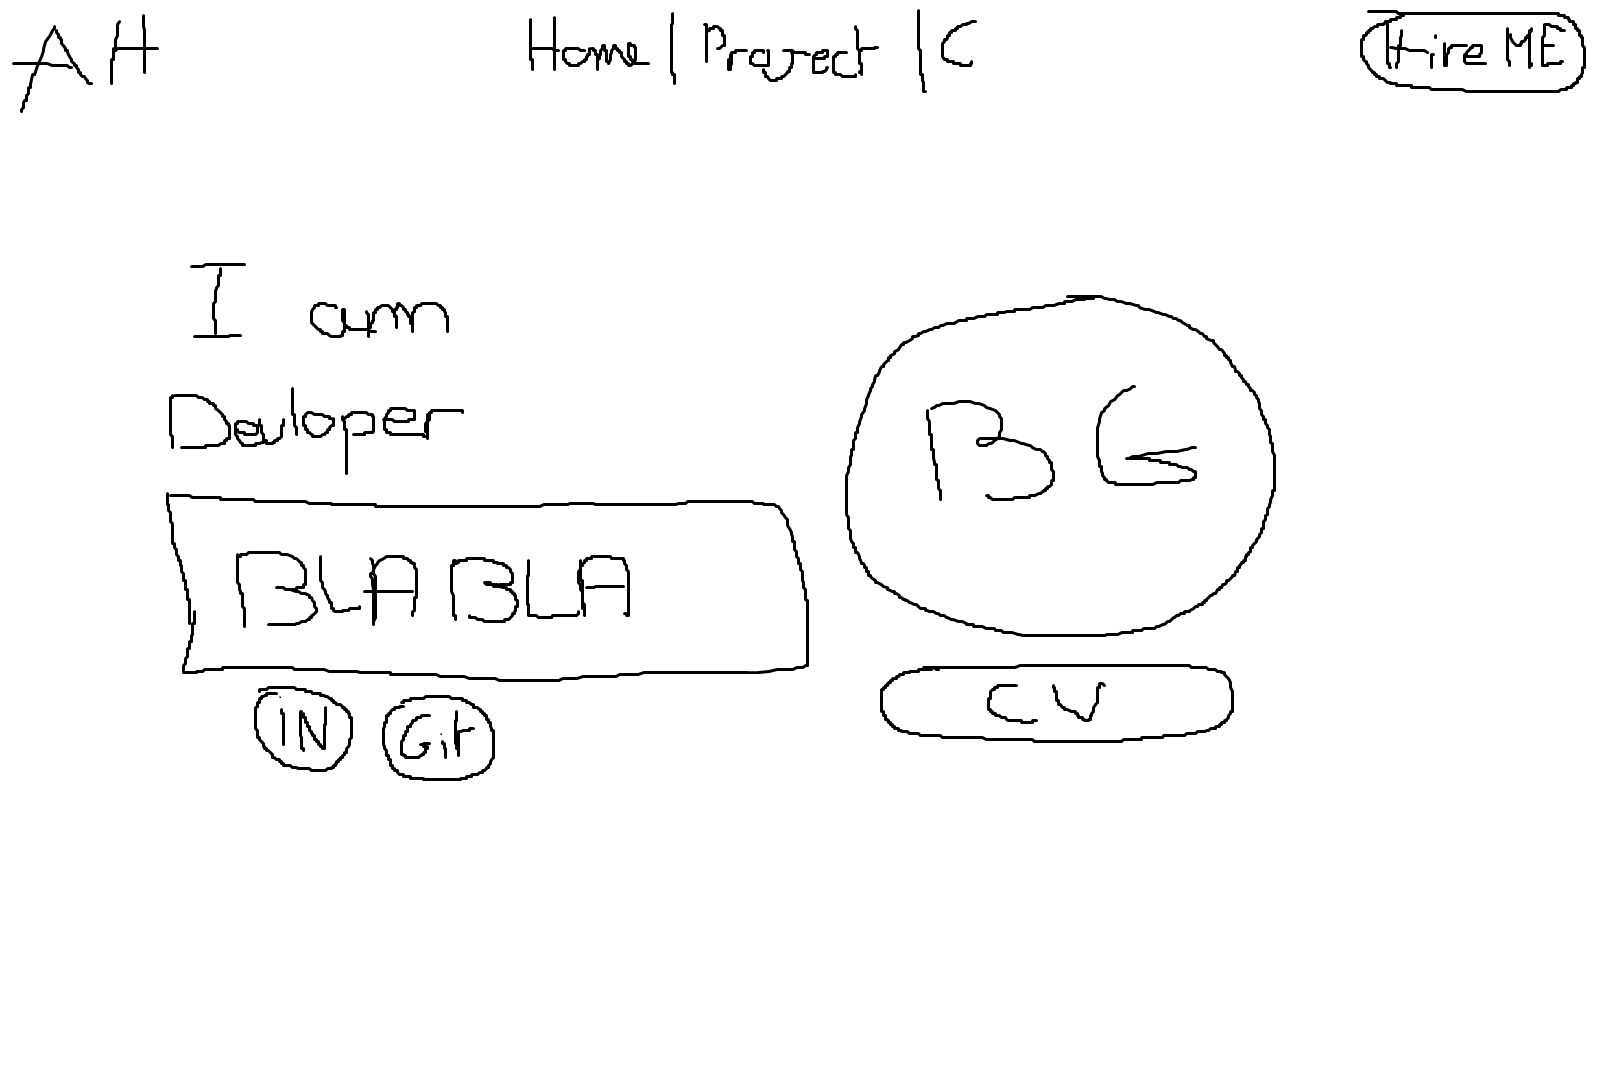 AH Home | Project | C Hire ME
I am
Devloper
BLA BLA
BG
IN Git
CV